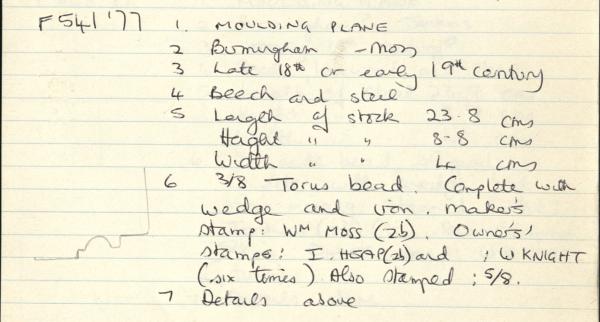 F541'77 1. MOULDING PLANE
2 Birmingham - Moss
3 Late 18th or early 19th century
4 Beech and steel
5 Length of stock 23.8 cms
Height " " 8.8 cms
Width " " 4 cms
6 3/8 Torus bead. Complete with
wedge and iron. Maker's
stamp: WM MOSS (2b). Owner's'
stamps: I. HEAP (2b) and ; W KNIGHT
(six times) Also stamped ; 5/8.
7 Details above